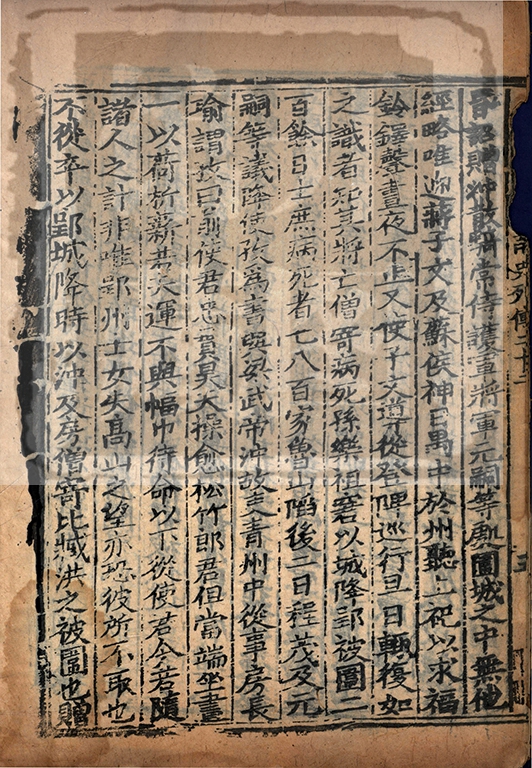 史列傳二十二
三
昏詔贈沖散騎常侍護軍將軍元嗣等處圍城之中無他
經略唯迎蔣子文及蘇侯神日禺中於州聽上祀以求福
鈴鐸聲晝夜不止又使子文導從登陴巡行旦日輒復如
之識者知其將亡僧寄病死孫樂祖窘以城降郢被圍二
百餘日士庶病死者七八百家魯山陷後二日程茂及元
嗣等議降使孜為書與梁武帝沖故吏青州中從事房長
瑜謂孜曰前使君忠貫昊天操愈松竹郎君但當端坐畫
一以荷析薪若天運不與幅巾待命以下從使君今若隨
諸人之計非唯郢州士女失高山之望亦恐彼所不取也
不從卒以郢城降時以沖及房僧寄比臧洪之被圍也贈